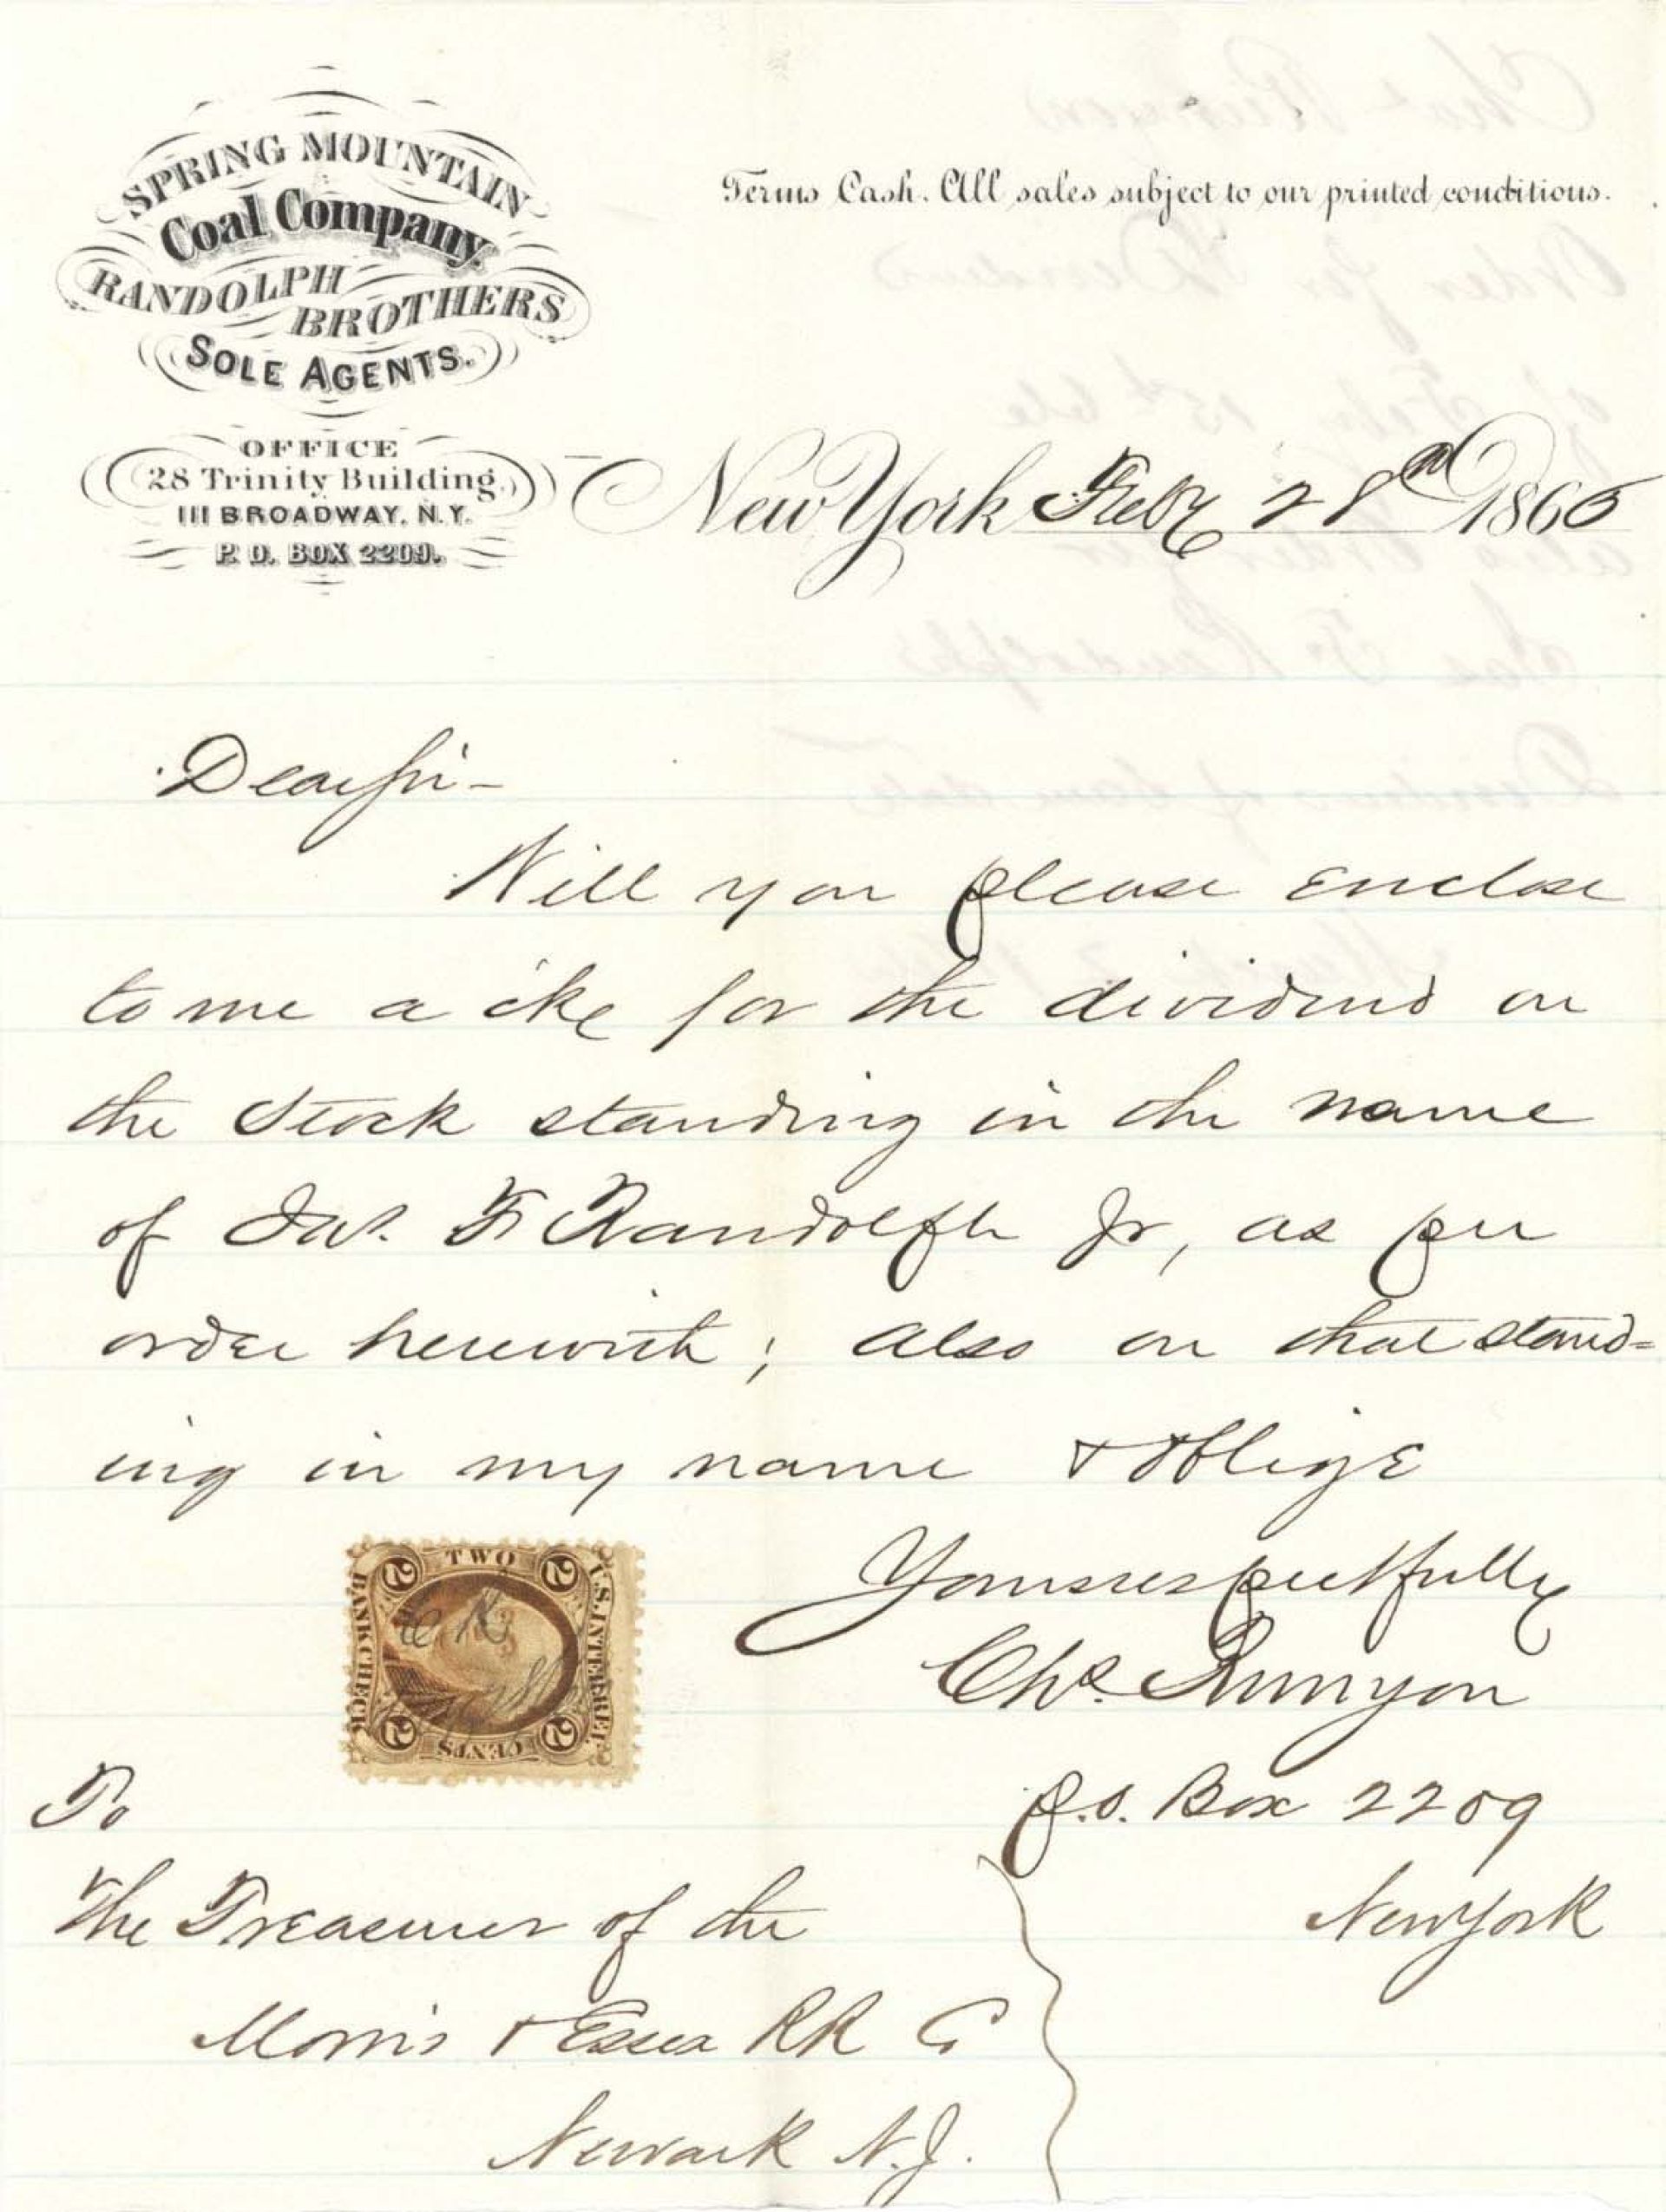 SPRING MOUNTAIN
Coal Company
RANDOLPH
BROTHERS
SOLE AGENTS.
OFFICE
28 Trinity Building
111 BROADWAY, N.Y.
P. O. BOX 2209.
Terms Cash. All sales subject to our printed conditions.
New York Feby 28th 1866
Dear Sir -
Will you please enclose
to me a cke for the dividend on
the Stock standing in the name
of Jas. F. Randolph Jr, as per
order herewith; also on that stand=
ing in my name & oblige
Yours respectfully
Chs. Runyon
P.O. Box 2209
New York
TWO
BANK CHECK
U.S. INTER. REV.
CENTS
2 2
2 2
C R
To
The Treasurer of the
Morris & Essex RR Co
Newark N.J.